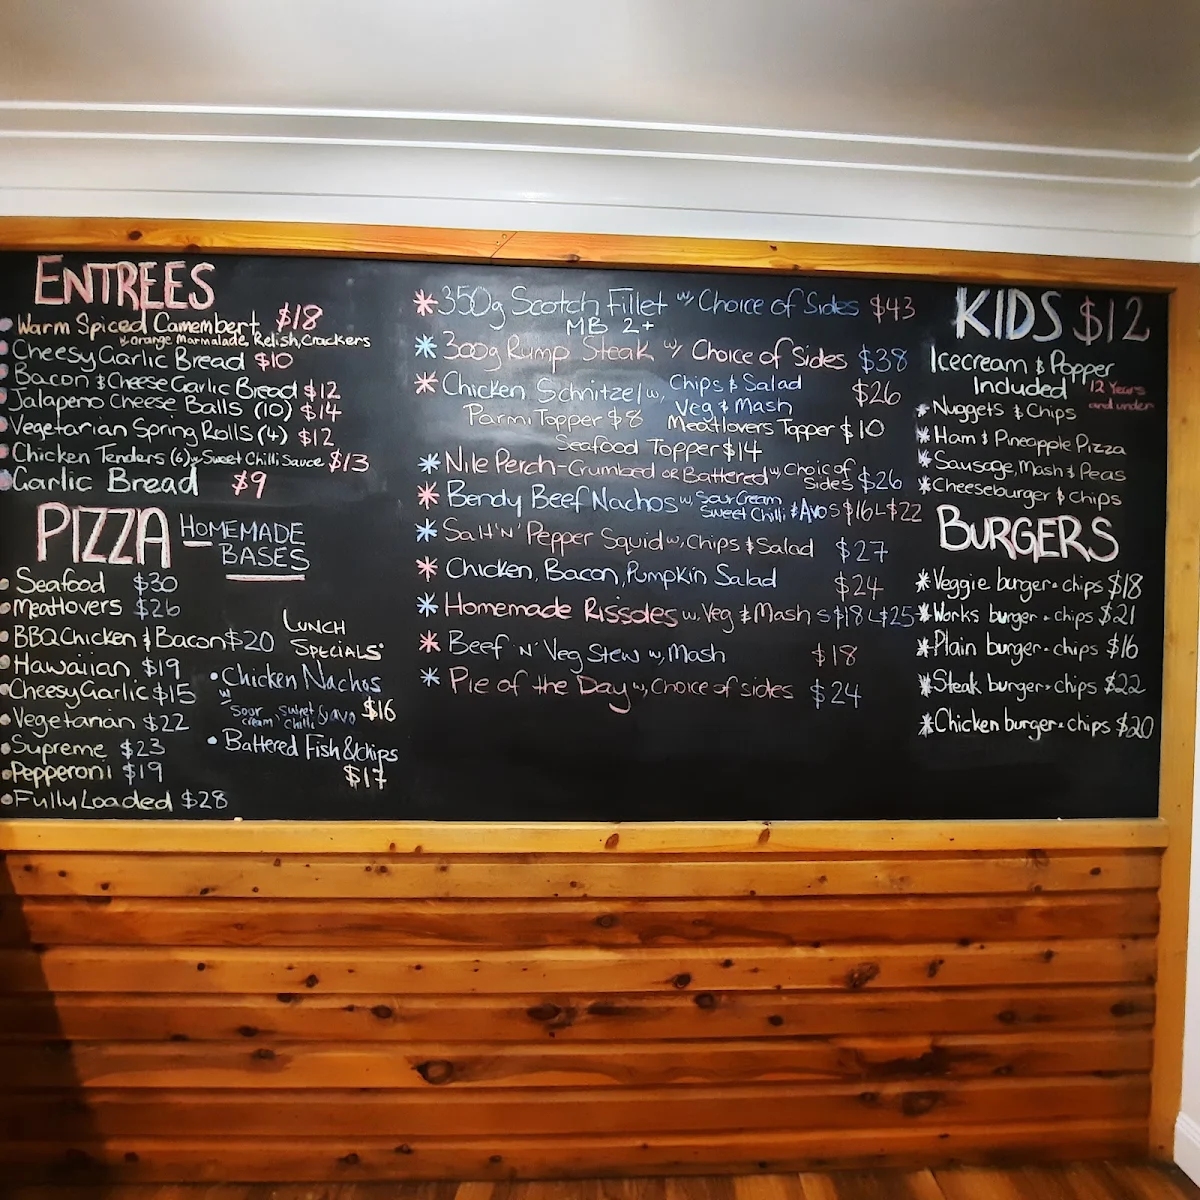 ENTREES
Warm Spiced Camembert $18
w orange Marmalade, Relish, Crackers
Cheesy Garlic Bread $10
Bacon & Cheese Garlic Bread $12
Jalapeno Cheese Balls (10) $14
Vegetarian Spring Rolls (4) $12
Chicken Tenders (6) w Sweet Chilli Sauce $13
Garlic Bread $9
PIZZA HOMEMADE
BASES
Seafood $30
Meatlovers $26
BBQ Chicken & Bacon $20
Hawaiian $19
Cheesy Garlic $15
Vegetarian $22
Supreme $23
Pepperoni $19
Fully Loaded $28
LUNCH
SPECIALS
Chicken Nachos
w
Sour cream, Sweet Chilli & avo $16
Battered Fish & chips
$17
350g Scotch Fillet w/ Choice of Sides $43
MB 2+
300g Rump Steak w/ Choice of Sides $38
Chicken Schnitzel w, Chips & Salad $26
Veg & Mash
Parmi Topper $8 Meatlovers Topper $10
Seafood Topper $14
Nile Perch-Crumbed or Battered w, Choic of
sides $26
Bendy Beef Nachos w, Sour Cream
Sweet Chilli & Avo S $16 L $22
Salt 'N' Pepper Squid w, Chips & Salad $27
Chicken, Bacon, Pumpkin Salad $24
Homemade Rissoles w. Veg & Mash S $18 L $25
Beef 'N' Veg Stew w, Mash $18
Pie of the Day w, Choice of sides $24
KIDS $12
Icecream & Popper
Included 12 Years
and under
Nuggets & Chips
Ham & Pineapple Pizza
Sausage, Mash & Peas
Cheeseburger & Chips
BURGERS
Veggie burger + chips $18
Works burger + chips $21
Plain burger + chips $16
Steak burger + chips $22
Chicken burger + chips $20